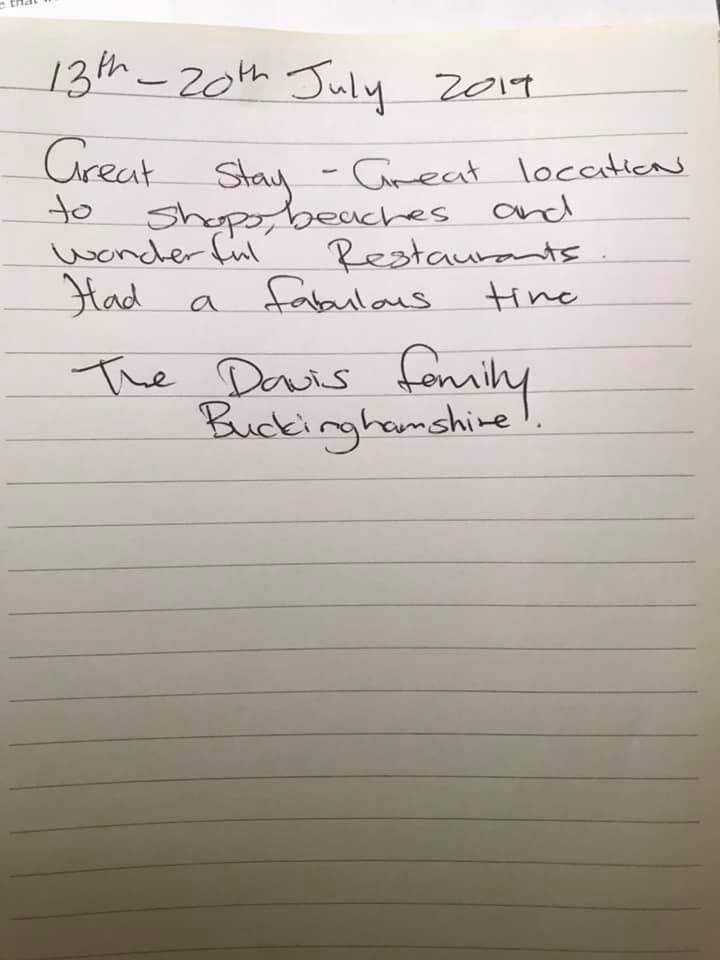 e that w
13th - 20th July 2019
Great stay - Great location
to shops, beaches and
wonderful Restaurants.
Had a fabulous time
The Davis family
Buckinghamshire!.